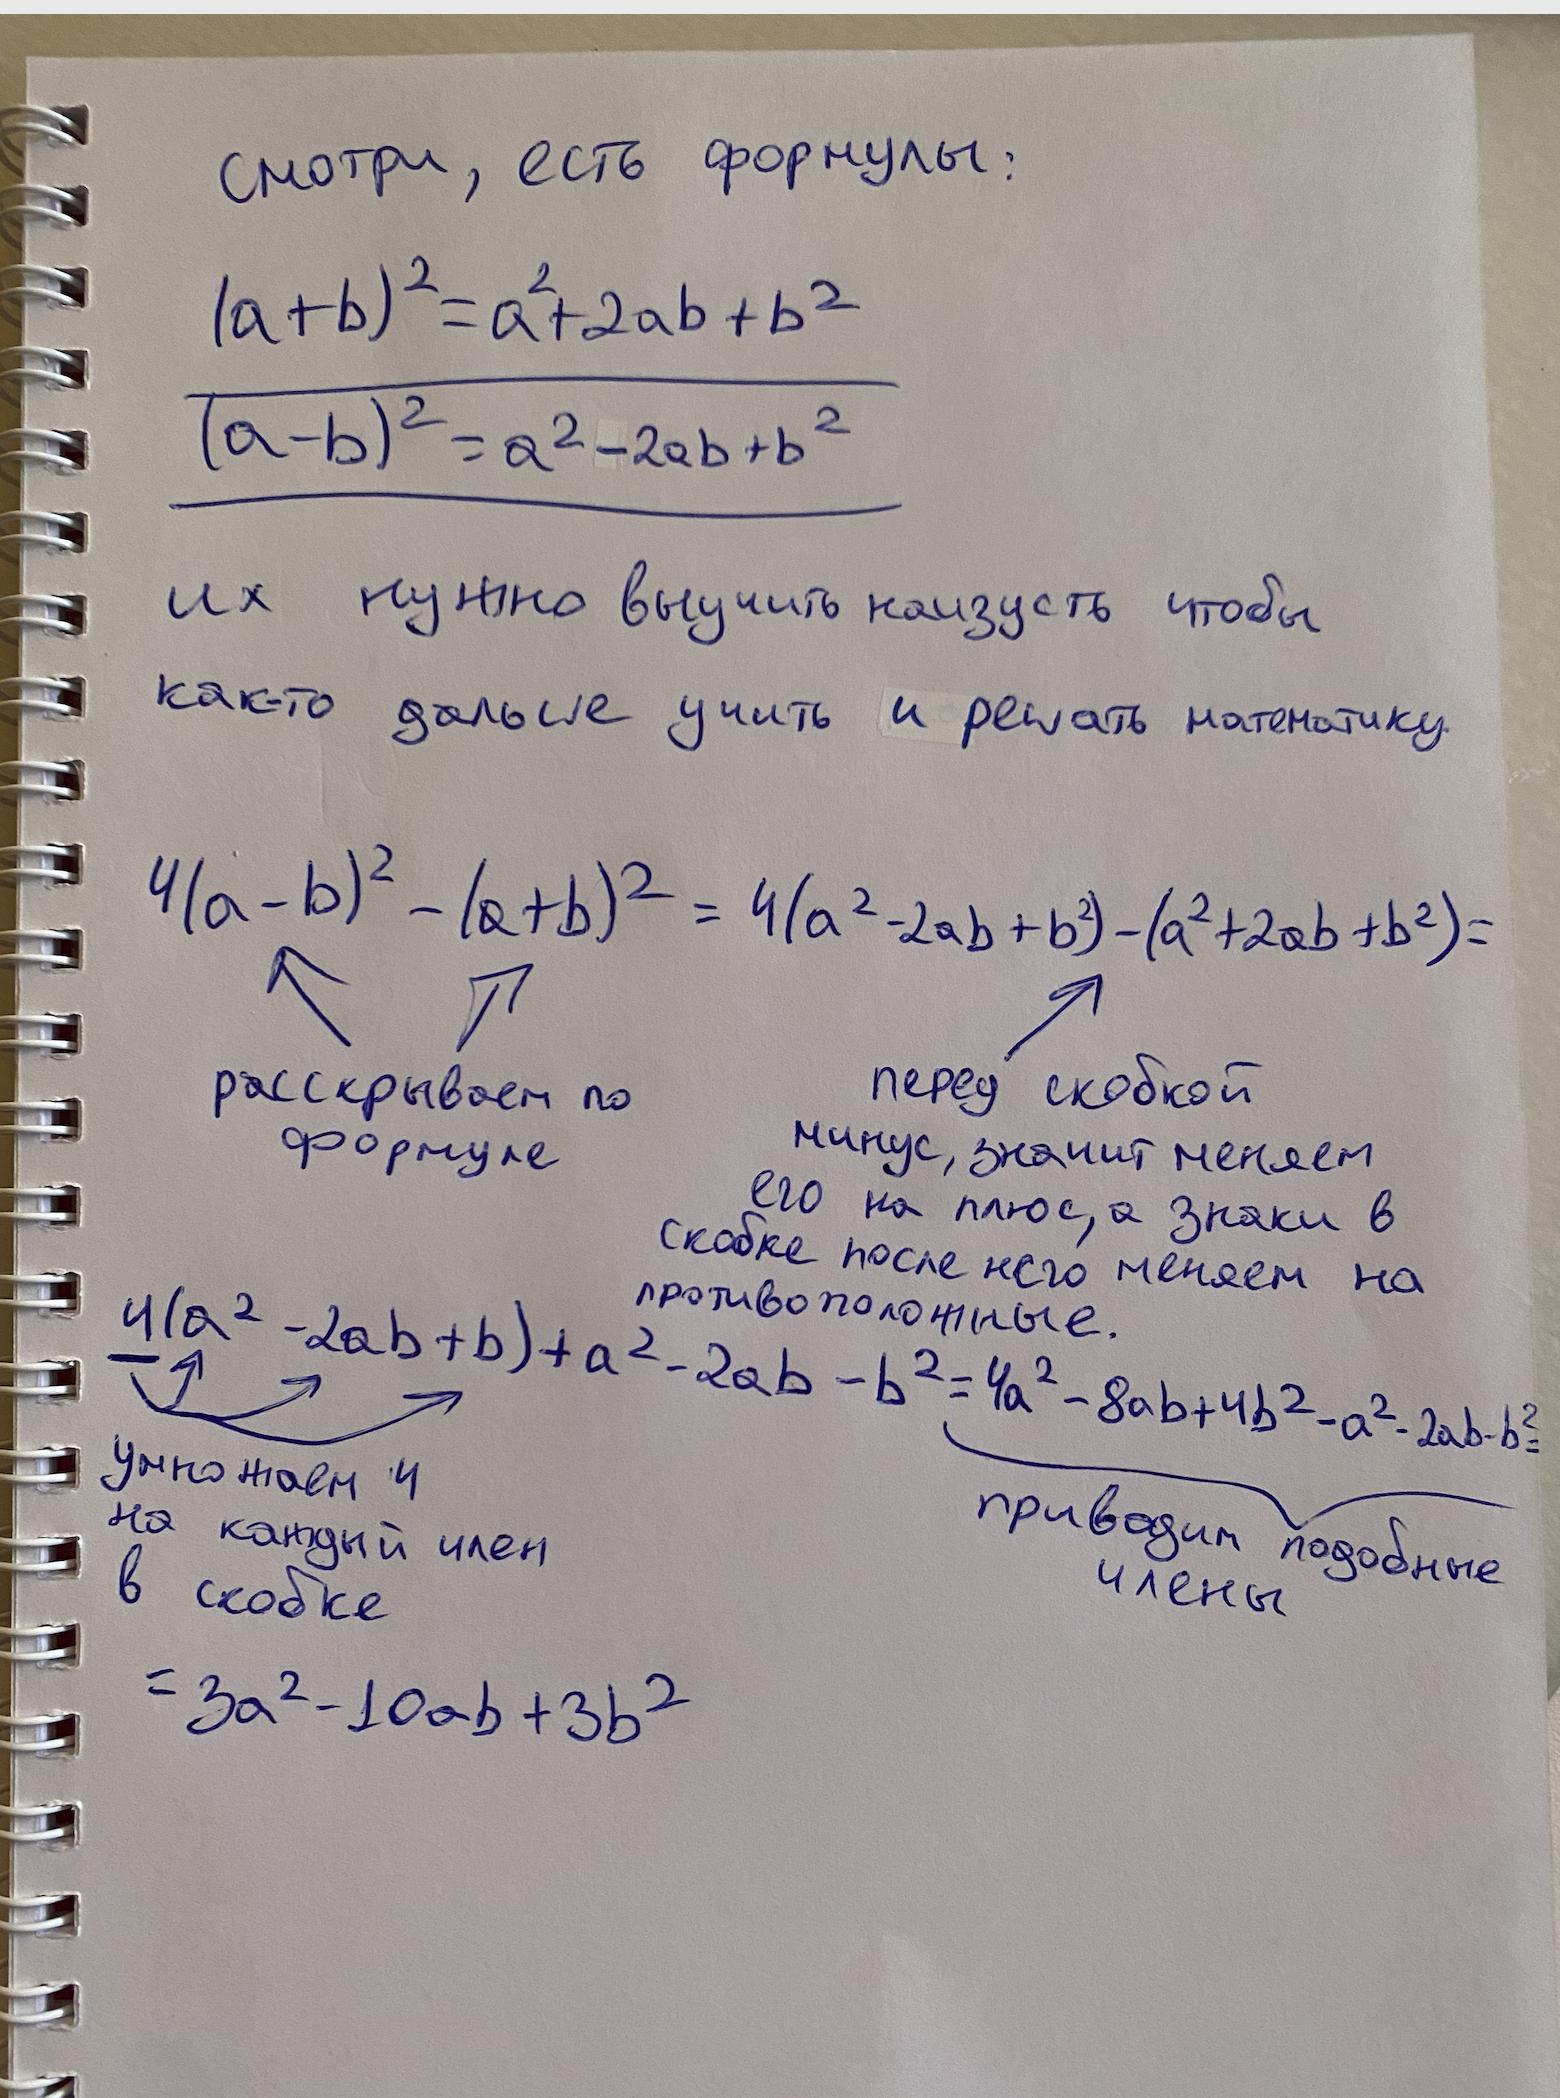 смотри, есть формулы:
(a+b)²=a²+2ab+b²
(a-b)²=a²-2ab+b²
их нужно выучить наизусть чтобы
как-то дальше учить и решать математику
4(a-b)²-(a+b)²=4(a²-2ab+b²)-(a²+2ab+b²)=
расскрываем по
формуле
перед скобкой
минус, значит меняем
его на плюс, а знаки в
скобке после него меняем на
противоположные.
4(a²-2ab+b)+a²-2ab-b²=4a²-8ab+4b²-a²-2ab-b²=
умножаем 4
на каждый член
в скобке
приводим подобные
члены
=3a²-10ab+3b²